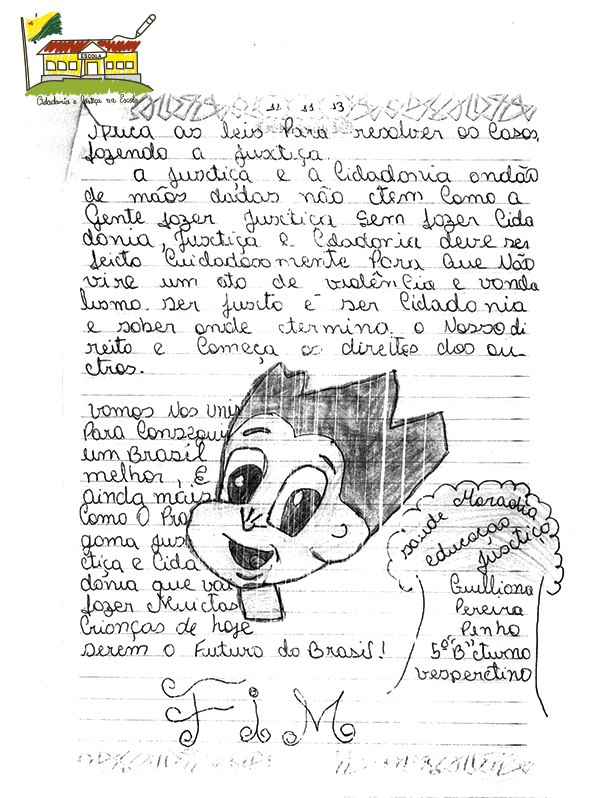 ESCOLA
Cidadania e Justiça na Escola
plica as leis Para resolver os Casos,
fazendo a justiça.
A justiça e a Cidadania andão
de mãos dadas não tem como a
Gente fazer justiça sem fazer Cida
dania, justiça e Cidadania deve ser
feito Cuidadosamente Para que Não
vire um ato de violência e vanda
lismo. ser justo é ser Cidadania
e saber onde termina o Nosso di
reito e Começa os direitos dos ou-
tros.
vamos Nos unir
Para Consegui
um Brasil
melhor, E
ainda mais
Como O Pro
gama jus
tiça e Cida
dania que vai
fazer Muitas
Crianças de hoje
serem o Futuro do Brasil!
saúde Moradia
educação
justiça
Guilliana
Pereira
Penha
5º "B" turno
vespertino
FiM